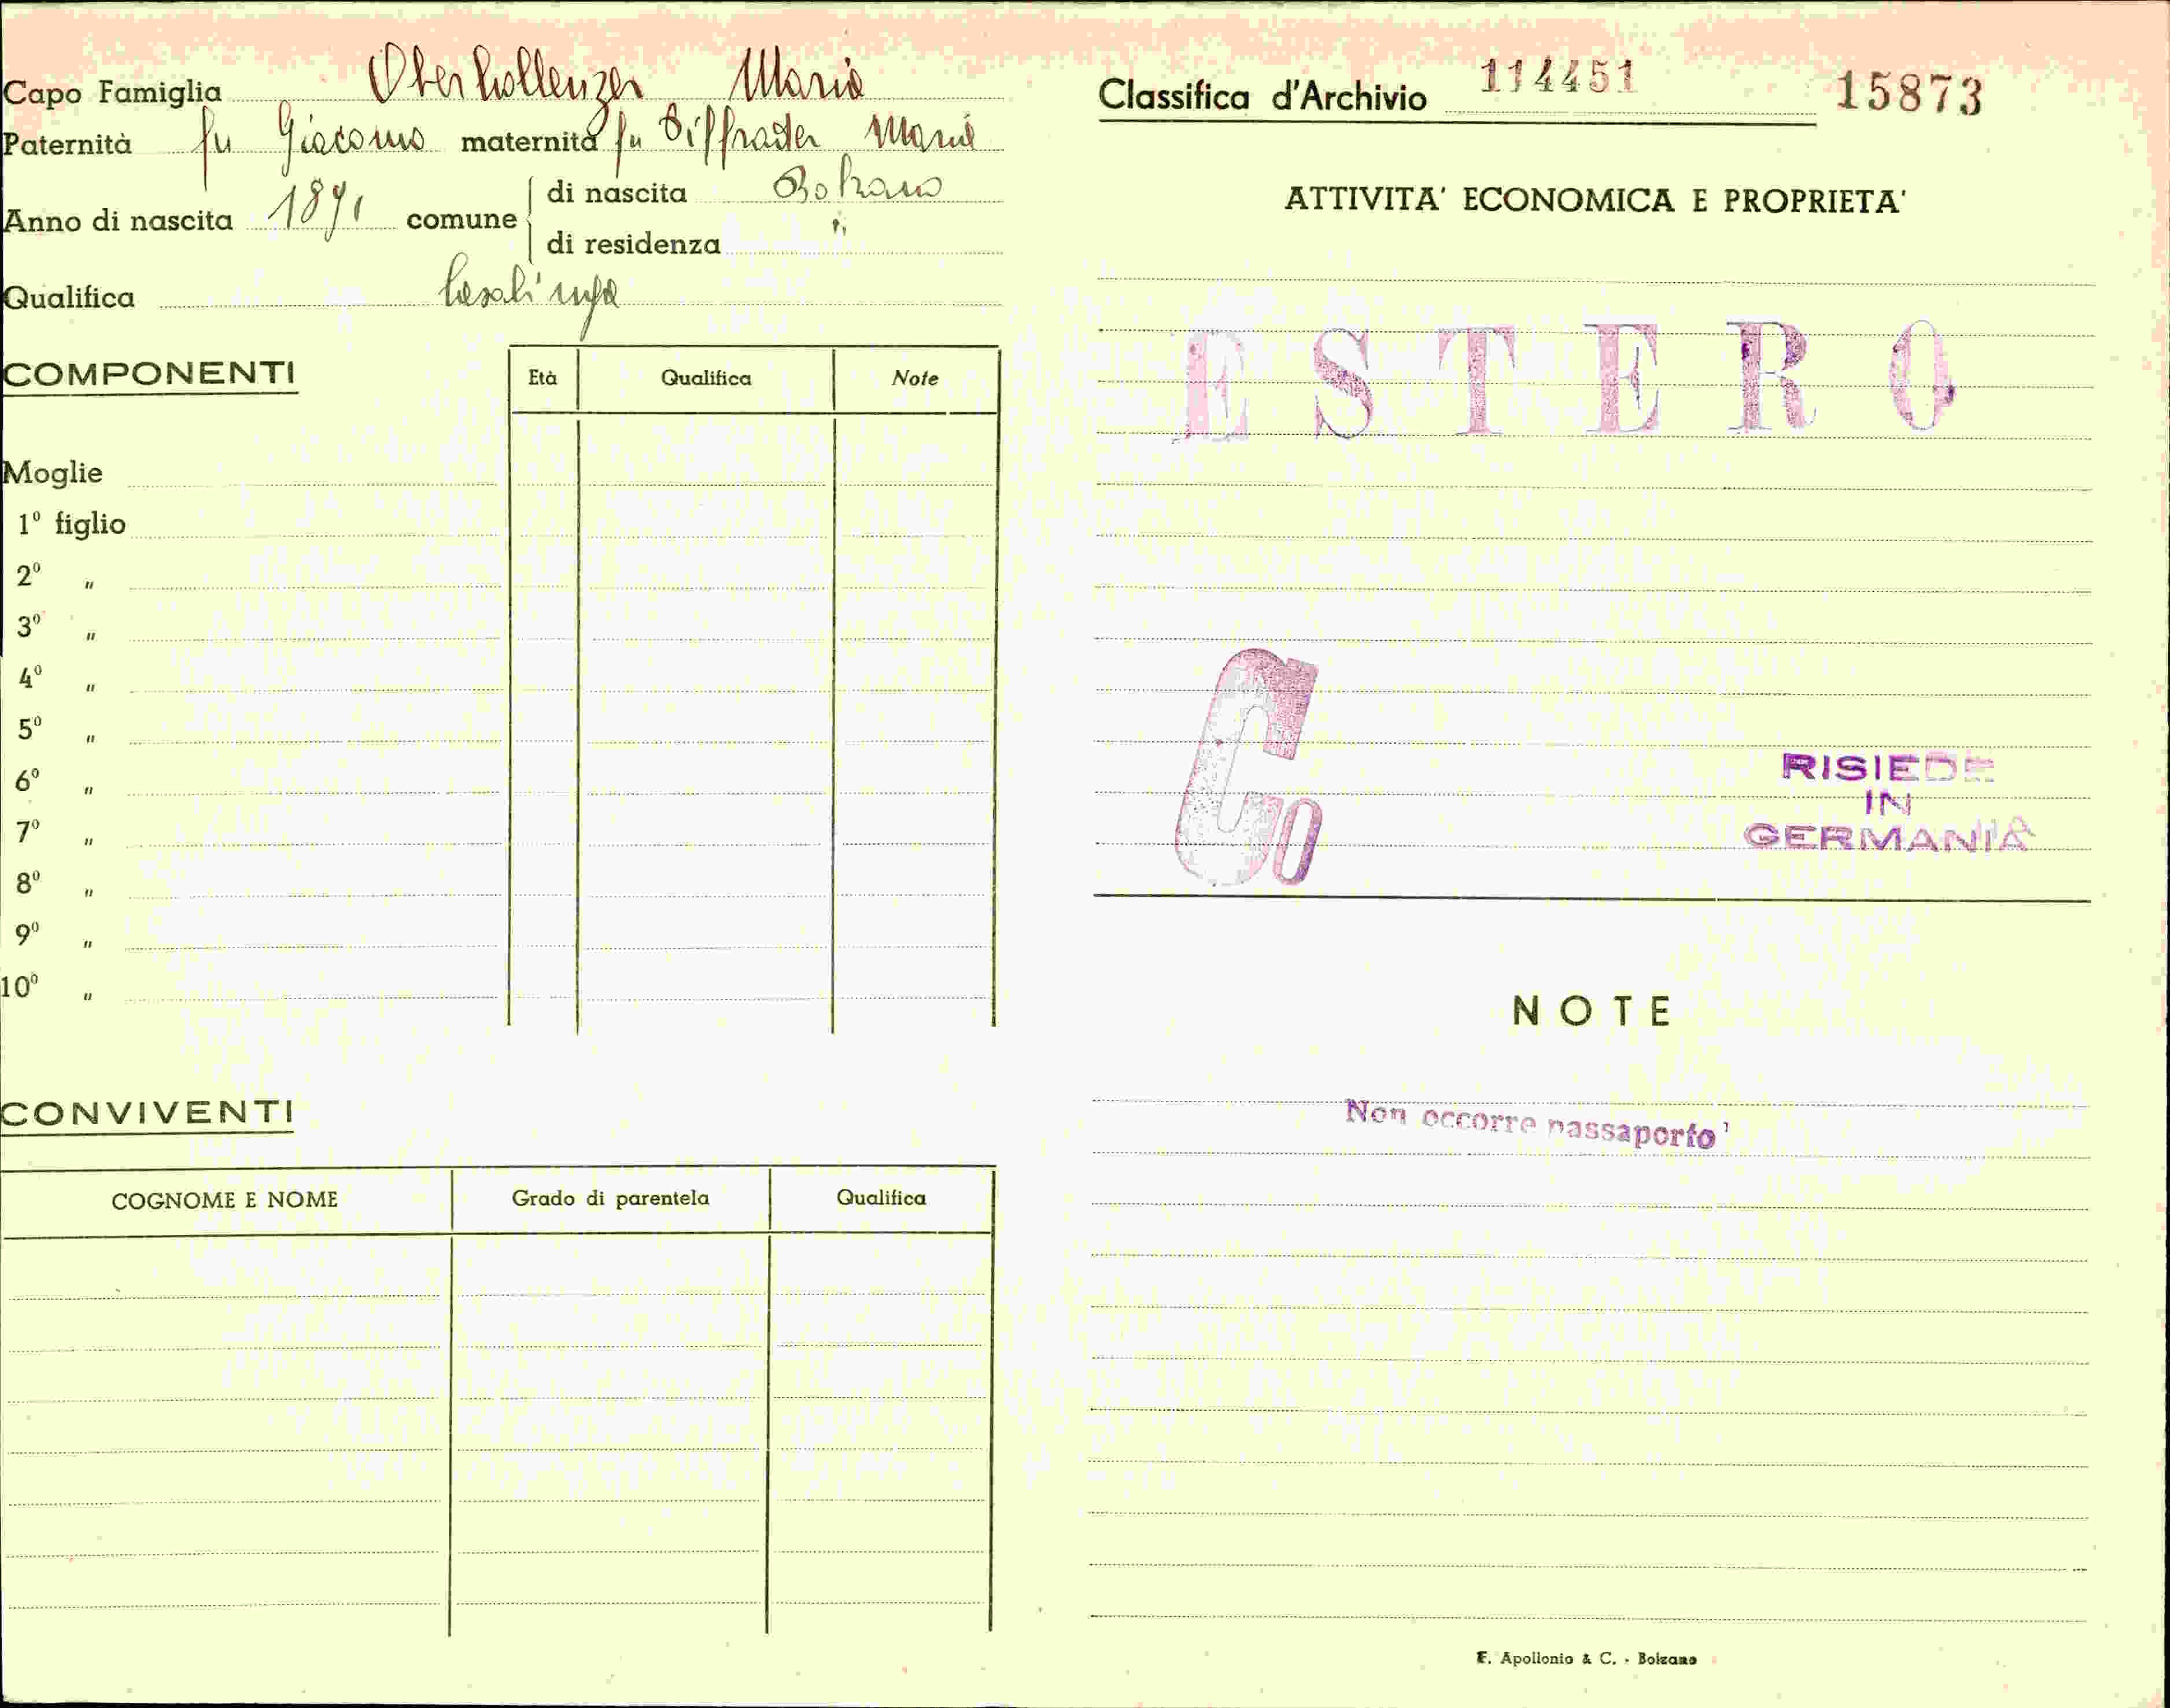 Capo Famiglia Oberhollenzer Maria
Paternità fu Giacomo maternità fu Diffrader Maria
Anno di nascita 1891 comune di nascita Bolzano
di residenza "
Qualifica Casalinga
COMPONENTI Età Qualifica Note
Moglie
1º figlio
2º "
3º "
4º "
5º "
6º "
7º "
8º "
9º "
10º "
CONVIVENTI
COGNOME E NOME Grado di parentela Qualifica
Classifica d'Archivio 114451 15873
ATTIVITA' ECONOMICA E PROPRIETA'
ESTERO
Co
RISIEDE
IN
GERMANIA
NOTE
Non occorre passaporto
F. Apollonio & C. - Bolzano